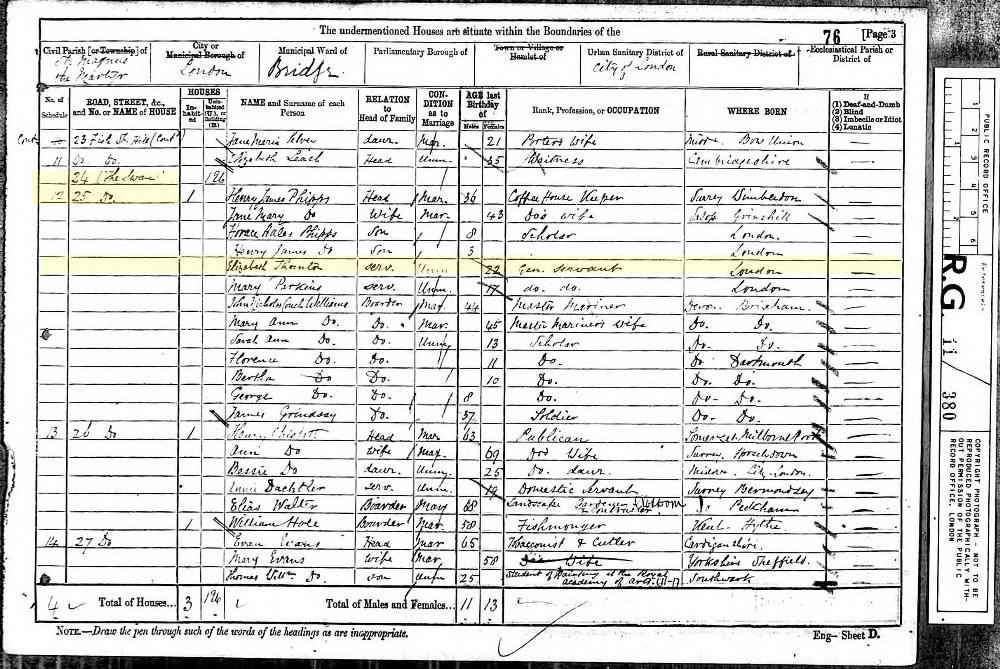 The undermentioned Houses are situate within the Boundaries of the
76 [Page 3
Civil Parish [or Township] of St. Magnus the Martyr
City or Municipal Borough of London
Municipal Ward of Bridge
Parliamentary Borough of
Town or Village or Hamlet of
Urban Sanitary District of City of London
Rural Sanitary District of
Ecclesiastical Parish or District of
No. of Schedule
ROAD, STREET, &c., and No. or NAME of HOUSE
HOUSES
Inhabited
Uninhabited (U.), or Building (B.)
NAME and Surname of each Person
RELATION to Head of Family
CONDITION as to Marriage
AGE last Birthday of
Males
Females
Rank, Profession, or OCCUPATION
WHERE BORN
If
(1) Deaf-and-Dumb
(2) Blind
(3) Imbecile or Idiot
(4) Lunatic
23 Fish St. Hill Jane Maria Silver daur. Mar. 21 Porters Wife Middx. Bow Union
11 Do. Do. Elizabeth Leach Head Unm. 35 Waitress Cambridgeshire
24 (The Swan)
12 25 Do. 1 Henry James Phipps Head Mar. 36 Coffee House Keeper Surrey Wimbledon
Jane Mary Do Wife Mar. 43 Do's wife Salop Grinshill
Horace Hales Phipps Son 8 Scholar London.
Henry James Do Son 3 London
Elizabeth Thornton serv. Unm 22 Gen. servant London
Mary Perkins serv. Unm. 17 do. do. London
John Nicholas Couch Williams Boarder Mar. 44 Master Mariner Devon Brixham
Mary Ann Do. Do. Mar. 45 Master Mariner's wife Do. Do.
Sarah Ann Do. Do. Unm 13 Scholar Do. Do.
Florence Do. Do. 11 Do. Do Dartmouth
Bertha Do Do. 10 Do. Do. Do.
George Do. Do. 8 Do. Do- Do.
James Grindsay Do. 37 Soldier Do- Do.
13 26 Do 1 Henry Head Mar 63 Publican Somerset Milborne Port
Ann Do wife Mar. 69 Do's Wife Surrey Horselydown
Bessie Do daur. Unm. 25 Do. daur. Middx. City London.
Annie Dachtler serv. Unm. 19 Domestic Servant Surrey Bermondsey
Elias Walter Boarder Mar 68 Landscape Gardener & Contractor Do Peckham
1 William Hole Boarder Mar. 58 Fishmonger Kent Hythe
14 27 Do Evan Evans Head Mar 65 Tobacconist & Cutler Cardiganshire.
Mary Evans Wife Mar. 58 Do's Wife Yorkshire Sheffield.
Thomas Willm Do. son Unm 25 Student of Painting at the Royal Academy of Arts Southwark
4 Total of Houses... 3 Total of Males and Females... 11 13
NOTE.—Draw the pen through such of the words of the headings as are inappropriate.
Eng— Sheet D.
PUBLIC RECORD OFFICE
1 2 3 4 5 6
Reference:-
RG 11 / 380
COPYRIGHT PHOTOGRAPH - NOT TO BE REPRODUCED PHOTOGRAPHICALLY WITHOUT PERMISSION OF THE PUBLIC RECORD OFFICE, LONDON